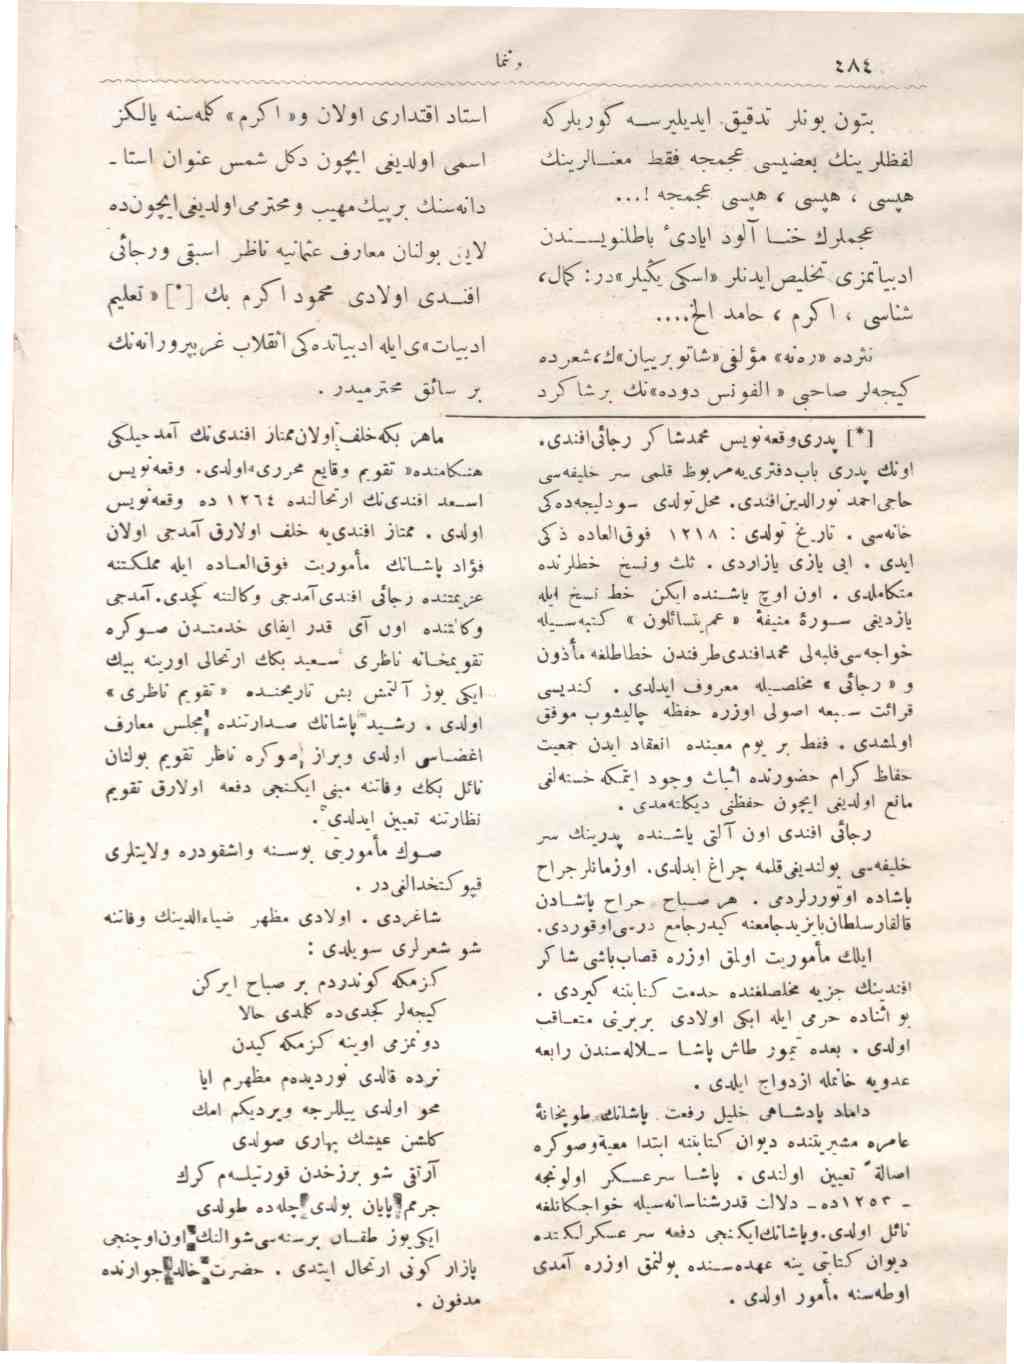 ٤٨٤
بتون بونلر تدقیق ایدیلیرسه كوریلركه
لفظلرینك بعضیسی عجمجه فقط معنالرینك
هپسی ، هپسی ، هپسی عجمجه !...
عجملرك خنا آلود ایادیٔ باطلنویسندن
ادبیاتمزی تخلیص ایدنلر «اسكی یكیلر»در: كمال،
شناسی ، اكرم ، حامد الخ....
نثرده «رهنه» مؤلفی «شاتوبریان»ك، شعرده
كیجه‌لر صاحبی « الفونس دوده»نك بر شاكرد
استاد اقتداری اولان و« اكرم » كله‌سنه یالكز
اسمی اولدیغی ایچون دكل شمس عنوان استا ـ
دانه‌سنك بر پیك مهیب و محترمی اولدیغی ایچون ده
لاین بولنان معارف عثمانیه ناظر اسبقی و رجائی
افندی اولادی محمود اكرم بك [*] « تعلیم
ادبیات»ی ایله ادبیاتده‌كی انقلاب غریپرورانه‌نك
بر سائق محترمیدر .
[*] پدری وقعه‌نویس محمد شاكر رجائی افندی.
اونك پدری باب دفتری‌یه مربوط قلمی سر خلیفه‌سی
حاجی احمد نورالدین افندی. محل تولدی سودلیجه‌ده‌كی
خانه‌سی . تاریخ تولدی : ١٢١٨ فوق‌العاده ذكی
ایدی . ایی یازی یازاردی . ثلث و نسخ خطلرنده
متكاملدی . اون اوچ یاشنده ایكن خط نسخ ایله
یازدیغی سورهٔ منیفهٔ « عم یتسائلون » كتبه‌سیله
خواجه‌سی فلبه‌لی محمد افندی طرفندن خطاطلغه مأذون
و « رجائی » مخلصیله معروف ایدلدی . كندیسی
قرائت سبعه اصولی اوزره حفظه چالیشوب موفق
اولمشدی . فقط بر یوم معینده انعقاد ایدن جمعیت
حفاظ كرام حضورنده اثبات وجود ایتمكه خسته‌لغی
مانع اولدیغی ایچون حفظنی دیكلته‌مدی .
رجائی افندی اون آلتی یاشنده پدرینك سر
خلیفه‌سی بولندیغی قلمه چراغ ایدلدی. اوزمانلر جراح
پاشاده اوتوررلردی . هر صباح جراح پاشادن
قالقار سلطان بایزید جامعنه كیدر جامع درسی اوقوردی.
ایلك مأموریت اولمق اوزره قصاب‌باشی شاكر
افندینك جزیه مخلصلغنده خدمت كتابتنه كیردی .
بو اثناده حرمی ایله ایكی اولادی بربرینی متعاقب
اولدی . بعده تیمور طاش پاشا سلاله‌سندن رابعه
عدویه خانمله ازدواج ایلدی .
داماد پادشاهی خلیل رفعت پاشانك طوپخانهٔ
عامره مشیریتنده دیوان كتابتنه ابتدا معیة وصوكره
اصالةً تعیین اولندی . پاشا سرعسكر اولونجه
ـ ١٢٥٣ده ـ دلالت قدرشناسانه‌سیله خواجكانلغه
نائل اولدی. و پاشانك ایكنجی دفعه سرعسكرلكنده
دیوان كتابتی ینه عهده‌سنده بولنمق اوزره آمدی
اوطه‌سنه مأمور اولدی .
ماهر بكه خلف اولان ممتاز افندی‌نك آمدجیلكی
هنكامنده « تقویم وقایع محرری » اولدی. وقعه‌نویس
اسعد افندی‌نك ارتحالنده ١٢٦٤ ده وقعه‌نویس
اولدی . ممتاز افندی‌یه خلف اولارق آمدجی اولان
فؤاد پاشانك مأموریت فوق‌العاده ایله مملكتنه
عزیمتنده رجائی افندی آمدجی وكالتنه كچدی. آمدجی
وكالتنده اون آی قدر ایفای خدمتدن صوكره
تقویمخانه ناظری سعید بكك ارتحالی اورینه بیك
ایكی یوز آلتمش بش تاریخنده « تقویم ناظری »
اولدی . رشید پاشانك صدارتنده مجلس معارف
اعضاسی اولدی وبراز صوكره ناظر تقویم بولنان
نائل بكك وفاتنه مبنی ایكنجی دفعه اولارق تقویم
نظارتنه تعیین ایدلدی.
صوك مأموریتی بوسنه و اشقودره ولایتلری
قپوكتخدالغی‌در .
شاعردی . اولادی مظهر ضیاءالدینك وفاتنه
شو شعرلری سویلدی :
كزمكه كوندردم بر صباح ایركن
كیجه‌لر كچدی ده كلمدی حالا
دونمزمی اوینه كزمكه كیدن
نرده قالدی نوردیده‌م مظهرم ایا
محو اولدی ییللرجه ویردیكم امك
كلشن عیشك بهاری صولدی
آرتق شو برزخدن قورتیلهم كرك
جرمم پایان بولدی چله‌ده طولدی
ایكی یوز طقسان برسنه‌سی شوالنك اون اوچنجی
پازار كونی ارتحال ایتدی . حضرت خالد جوارنده
مدفون .